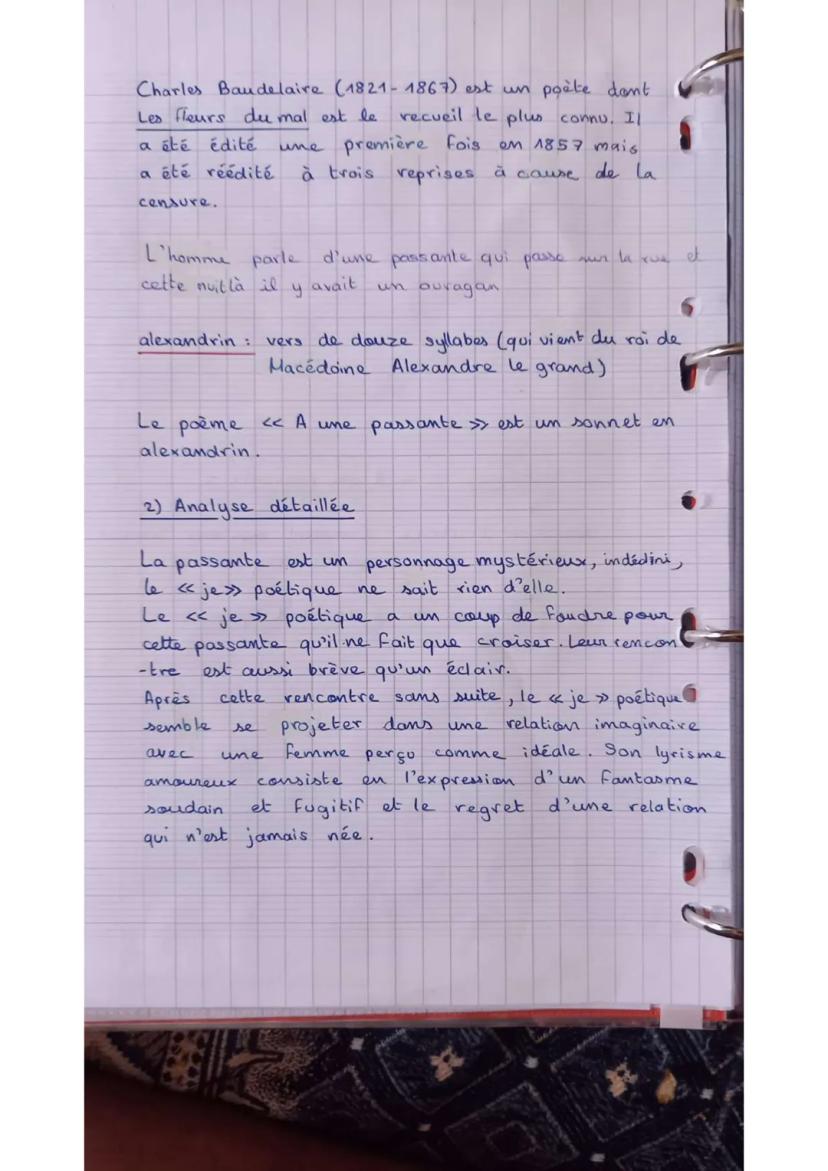 Charles Baudelaire (1821-1867) est un poète dont
Les fleurs du mal est le recueil le plus connu. Il
a été édité une première fois en 1857 mais
a été réédité à trois reprises à cause de la
censure.
L'homme parle d'une passante qui passe sur la rue et
cette nuit là il y avait un ouragan
alexandrin : vers de douze syllabes (qui vient du roi de
Macédoine Alexandre le grand)
Le poème << A une passante >> est un sonnet en
alexandrin.
2) Analyse détaillée
La passante est un personnage mystérieux, indédini,
le << je >> poétique ne sait rien d'elle.
Le << je >> poétique a un coup de foudre pour
cette passante qu'il ne fait que croiser. Leur rencon
-tre est aussi brève qu'un éclair.
Après cette rencontre sans suite, le << je >> poétique
semble se projeter dans une relation imaginaire
avec une femme perçu comme idéale. Son lyrisme
amoureux consiste en l'expression d'un fantasme
soudain et fugitif et le regret d'une relation
qui n'est jamais née.